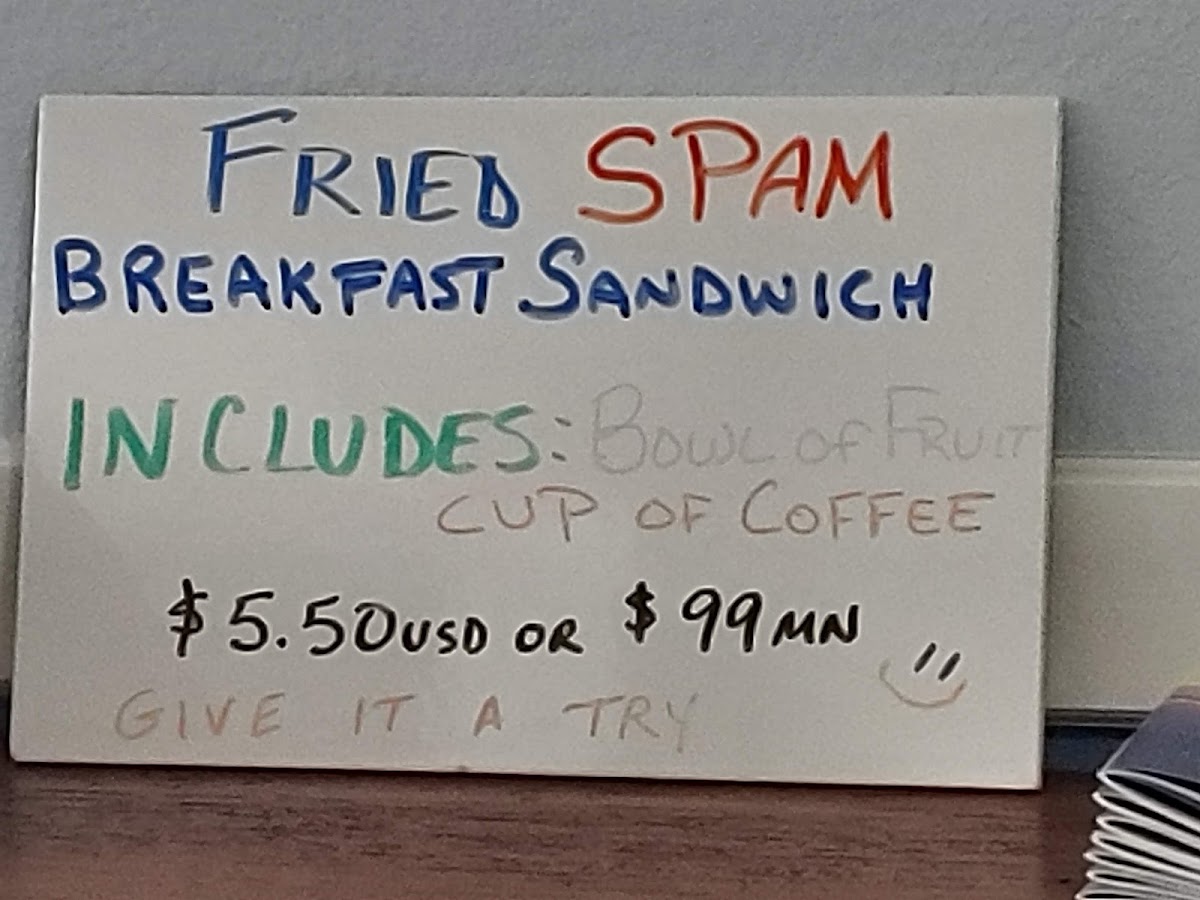 FRIED SPAM
BREAKFAST SANDWICH
INCLUDES: BOWL OF FRUIT
CUP OF COFFEE
$5.50 USD OR $99 MN
GIVE IT A TRY